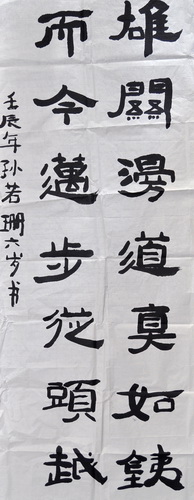 雄關漫道真如銕
而今邁步從頭越
壬辰年孙若珊六岁书